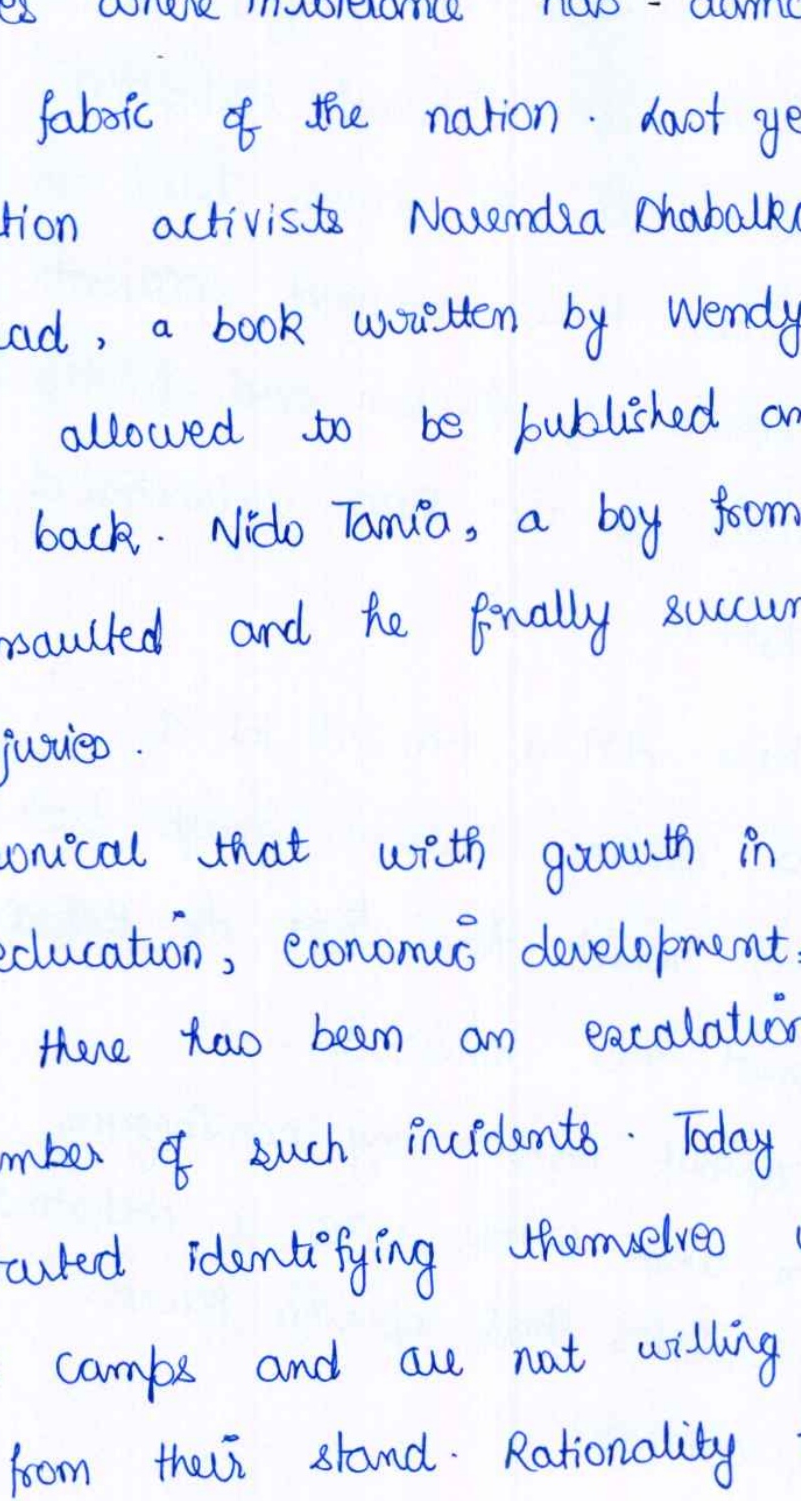 es where intolerance has - damа
fabric of the nation. Last ye
tion activists Narendra Dhabalka
ad, a book written by Wendy
allowed to be published an
back. Nido Tania, a boy from
ssaulted and he finally succum
juries.
onical that with growth in
education, economic development,
there has been an escalation
mber of such incidents. Today
arted identifying themselves
camps and are not willing
from their stand. Rationality